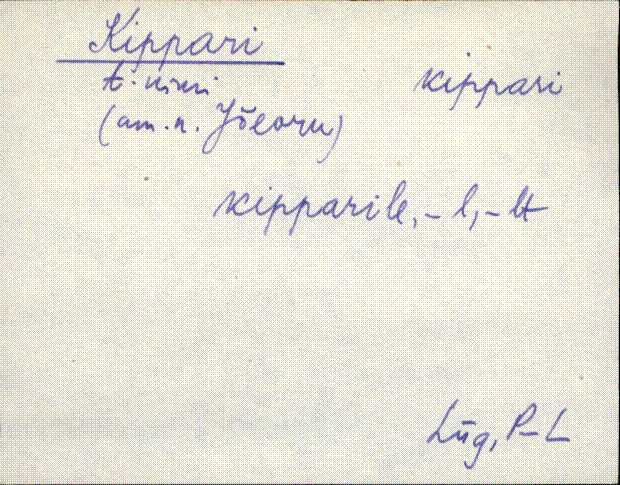 Kippari
t. nimi
kippari
(am. n. Jõeoru)
kipparile, -l, -lt
Lüg, P-L